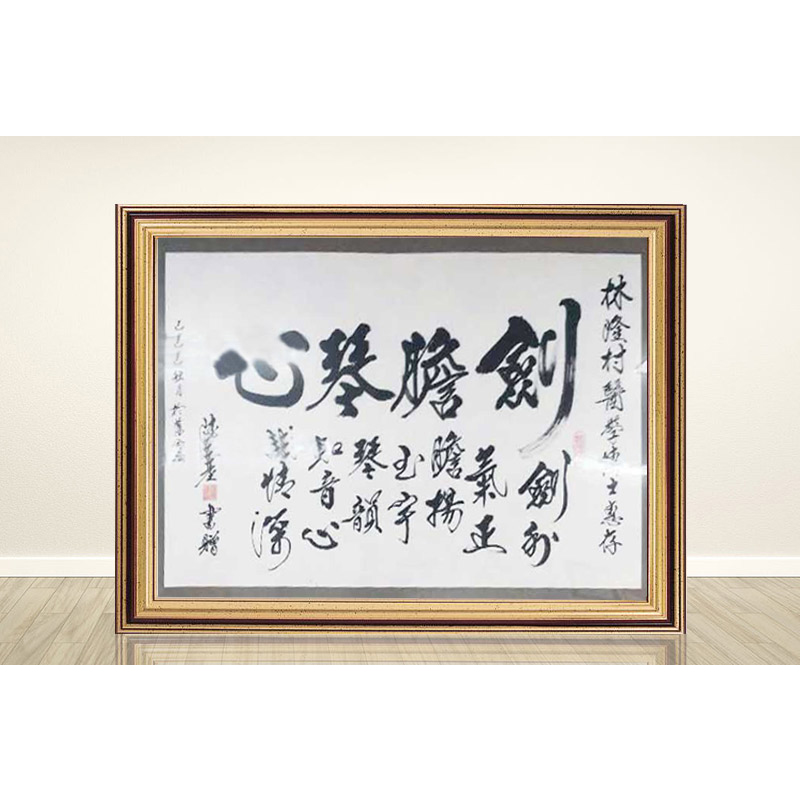 林隆村醫學博士惠存
劍膽琴心
劍外
氣正
膽揚
玉宇
琴韻
知音心
情深
書贈